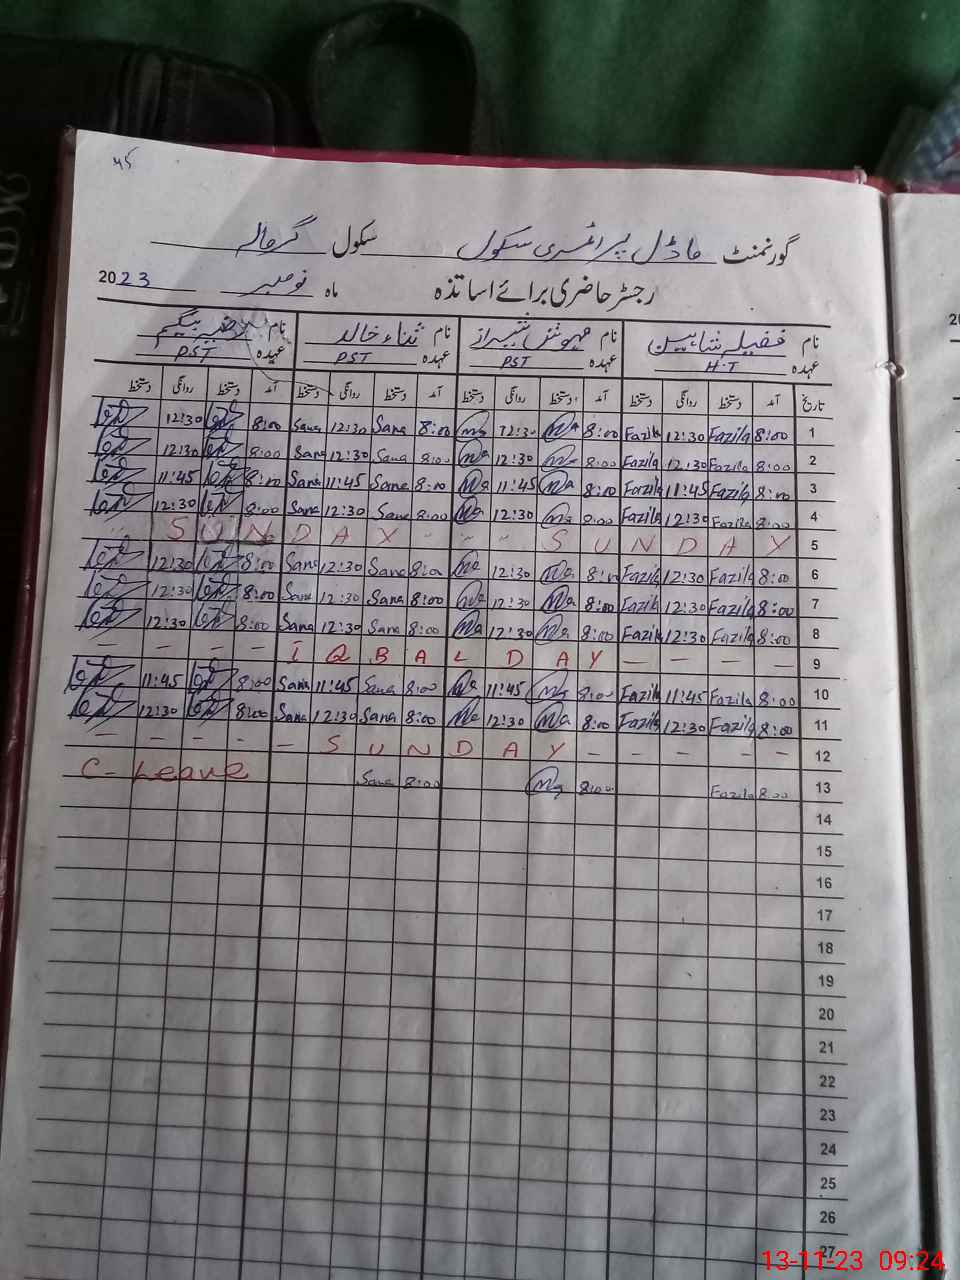 45
گورنمنٹ ماڈل پرائمری سکول سکول
رجسٹر حاضری برائے اساتذہ ماہ نومبر 2023
نام فضیلہ شاہین نام مہوش شیراز نام ثناء خالد نام بیگم
عہدہ H.T عہدہ PST عہدہ PST عہدہ PST
تاریخ آمد دستخط روانگی دستخط آمد دستخط روانگی دستخط آمد دستخط روانگی دستخط آمد دستخط روانگی دستخط
12:30 8:00 Sana 12:30 Sana 8:00 Ma 12:30 Ma 8:00 Fazila 12:30 Fazila 8:00 1
12:30 8:00 Sana 12:30 Sana 8:00 Ma 12:30 Ma 8:00 Fazila 12:30 Fazila 8:00 2
11:45 8:00 Sana 11:45 Sana 8:00 Ma 11:45 Ma 8:00 Fazila 11:45 Fazila 8:00 3
12:30 8:00 Sana 12:30 Sana 8:00 Ma 12:30 Ma 8:00 Fazila 12:30 Fazila 8:00 4
SUNDAY SUNDAY 5
12:30 8:00 Sana 12:30 Sana 8:00 Ma 12:30 Ma 8:00 Fazila 12:30 Fazila 8:00 6
12:30 8:00 Sana 12:30 Sana 8:00 Ma 12:30 Ma 8:00 Fazila 12:30 Fazila 8:00 7
12:30 8:00 Sana 12:30 Sana 8:00 Ma 12:30 Ma 8:00 Fazila 12:30 Fazila 8:00 8
— — — — IQBAL DAY — — — — 9
11:45 8:00 Sana 11:45 Sana 8:00 Ma 11:45 Ma 8:00 Fazila 11:45 Fazila 8:00 10
12:30 8:00 Sana 12:30 Sana 8:00 Ma 12:30 Ma 8:00 Fazila 12:30 Fazila 8:00 11
— — — — — SUNDAY — — — — — 12
C-Leave Sana 8:00 Ma 8:00 Fazila 8:00 13
14
15
16
17
18
19
20
21
22
23
24
25
26
27
13-11-23 09:24